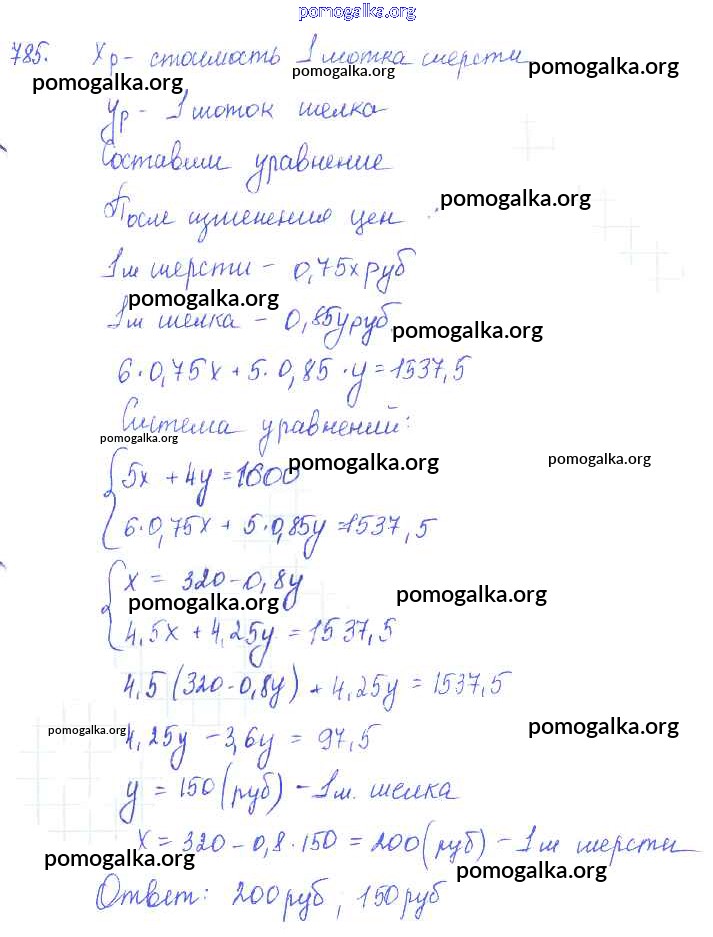 pomogalka.org
785. Xр - стоимость 1 мотка шерсти
pomogalka.org pomogalka.org
Ур - 1 моток шелка
Составим уравнение
После изменения цен
pomogalka.org
1м шерсти - 0,75x руб
pomogalka.org
1м шелка - 0,85y руб
pomogalka.org
6·0,75x + 5·0,85·y = 1537,5
Система уравнений:
pomogalka.org pomogalka.org pomogalka.org
5x + 4y = 1600
6·0,75x + 5·0,85y = 1537,5
x = 320 - 0,8y
pomogalka.org pomogalka.org
4,5x + 4,25y = 1537,5
4,5(320 - 0,8y) + 4,25y = 1537,5
pomogalka.org pomogalka.org
4,25y - 3,6y = 97,5
y = 150 (руб) - 1м. шелка
x = 320 - 0,8·150 = 200 (руб) - 1м шерсти
pomogalka.org pomogalka.org
Ответ: 200 руб; 150 руб